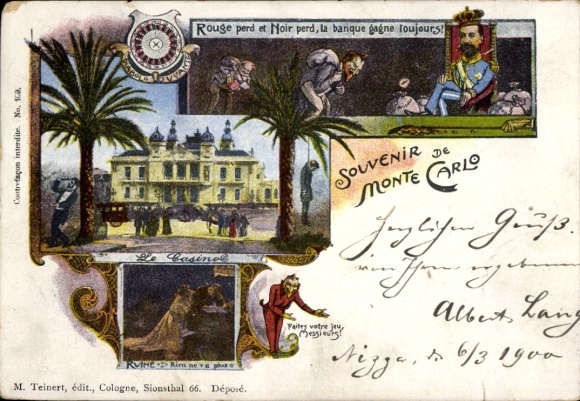 Rouge perd et Noir perd, la banque gagne toujours!
Contrefaçon interdite. No. 102.
SOUVENIR DE
MONTE CARLO
Herzlichen Gruß.
Albert Lang
Nizza, d. 6/3 1900
Le Casino
RUINE Rien ne va plus
Faites votre jeu,
Messieurs!
M. Teinert, édit., Cologne, Sionsthal 66. Déposé.